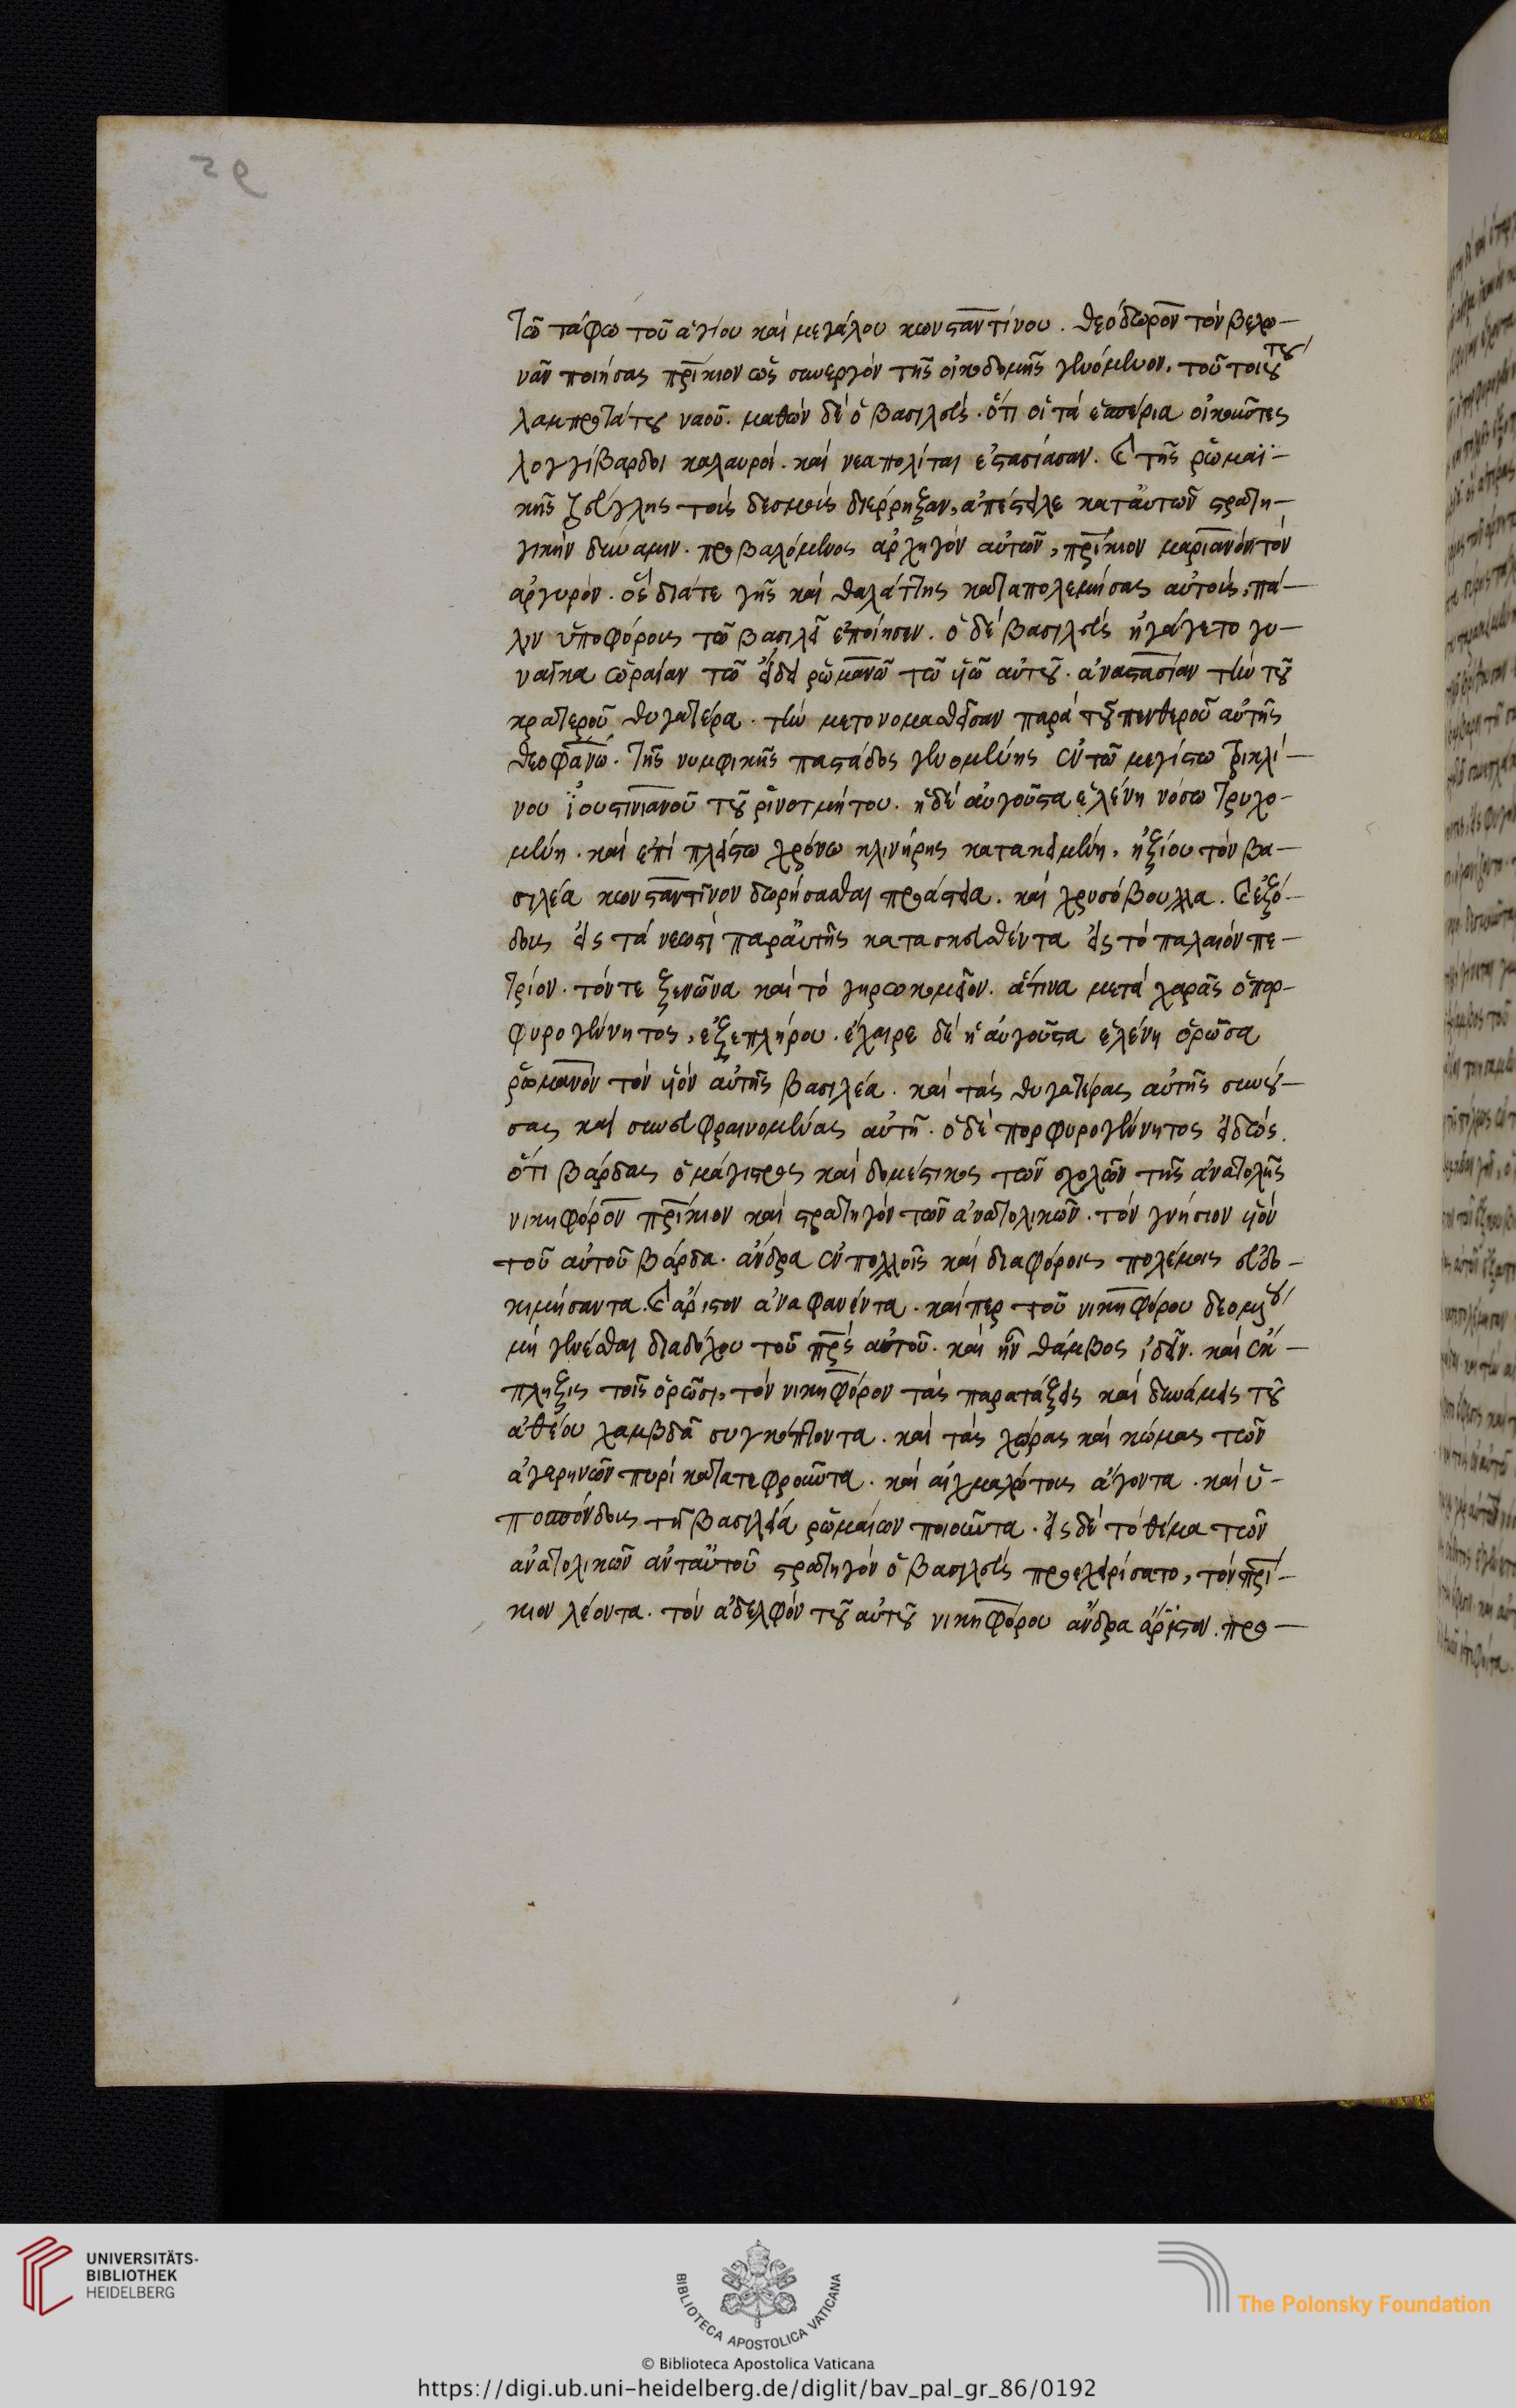 Τῶ τάφω τοῦ ἁγίου καὶ μεγάλου κωνσταντίνου. θεόδωρον τὸν βελω-
νᾶν ποιήσας πρίκιον ὡς συνεργὸν τῆς οἰκοδομῆς γενόμενον. τοῦ τοιούτου
λαμπροτάτου ναοῦ. μαθὼν δὲ ὁ βασιλεὺς. ὅτι οἱ τὰ ἑσπέρια οἰκοῦντες
λογγίβαρδοι καλαυροὶ. καὶ νεαπολίται ἐστασίασαν. καὶ τῆς ῥωμαϊ-
κῆς ζεύγλης τοὺς δεσμοὺς διέρρηξαν, ἀπέστειλε κατ' αὐτῶν στρατη-
γικὴν δύναμιν. προβαλόμενος ἀρχηγὸν αὐτῶν, πρίκιον μαριανὸν τὸν
ἀργυρὸν. ὃς διά τε γῆς καὶ θαλάττης καταπολεμήσας αὐτοὺς, πά-
λιν ὑποφόρους τῶ βασιλεῖ ἐποίησεν. ὁ δὲ βασιλεὺς ἠγάγετο γυ-
ναῖκα ὡραίαν τῶ εἴδει ῥωμανῶ τῶ υἱῶ αὐτοῦ. ἀναστασίαν τὴν τοῦ
κρατεροῦ θυγατέρα. τὴν μετονομασθεῖσαν παρὰ τοῦ πενθεροῦ αὐτῆς
θεοφανώ. Τῆς νυμφικῆς παστάδος γενομένης ἐν τῶ μεγίστω τρικλί-
νου ἰουστινιανοῦ τοῦ ῥινοτμήτου. ἡ δὲ αὐγοῦστα ἑλένη νόσω τρυχο-
μένη. καὶ ἐπὶ πλείστω χρόνω κλινήρης κατακειμένη, ἠξίου τὸν βα-
σιλέα κωνσταντῖνον δωρήσασθαι προάστεια. καὶ χρυσόβουλλα. καὶ ἐξό-
δους εἰς τὰ νεωστὶ παρ' αὐτῆς κατασκευασθέντα εἰς τὸ παλαιὸν πε-
τρίον. τόν τε ξενῶνα καὶ τὸ γηρωκομεῖον. ἅτινα μετὰ χαρᾶς ὁ πορ-
φυρογέννητος, ἐξεπλήρου. ἔχαιρε δὲ ἡ αὐγοῦστα ἑλένη ὁρῶσα
ῥωμανὸν τὸν υἱὸν αὐτῆς βασιλέα. καὶ τὰς θυγατέρας αὐτῆς συνού-
σας καὶ συνευφραινομένας αὐτῆ. ὁ δὲ πορφυρογέννητος εἰδὼς.
ὅτι βάρδας ὁ μάγιστρος καὶ δομέστικος τῶν σχολῶν τῆς ἀνατολῆς
νικηφόρον πρίκιον καὶ στρατηγὸν τῶν ἀνατολικῶν. τὸν γνήσιον υἱὸν
τοῦ αὐτοῦ βάρδα. ἄνδρα ἐν πολλοῖς καὶ διαφόροις πολέμοις εὐδο-
κιμήσαντα. καὶ ἄριστον ἀναφανέντα. καίπερ τοῦ νικηφόρου δεομένου
μὴ γενέσθαι διαδόχου τοῦ πρς αὐτοῦ. καὶ ἦν θάμβος ἰδεῖν. καὶ ἔκ-
πληξις τοῖς ὁρῶσι, τὸν νικηφόρον τὰς παρατάξεις καὶ δυνάμεις τοῦ
ἀθέου χαμβδᾶ συγκόπτοντα. καὶ τὰς χώρας καὶ κώμας τῶν
ἀγαρηνῶν πυρὶ κατατεφροῦντα. καὶ αἰχμαλώτους ἄγοντα. καὶ ὑ-
ποσπόνδους τῆ βασιλεία ῥωμαίων ποιοῦντα. εἰς δὲ τὸ θέμα τῶν
ἀνατολικῶν ἀντ' αὐτοῦ στρατηγὸν ὁ βασιλεὺς προεχειρίσατο, τὸν πρί-
κιον λέοντα. τὸν ἀδελφὸν τοῦ αὐτοῦ νικηφόρου ἄνδρα ἄριστον. προ-
UNIVERSITÄTS-
BIBLIOTHEK
HEIDELBERG
BIBLIOTECA APOSTOLICA VATICANA
The Polonsky Foundation
© Biblioteca Apostolica Vaticana
https://digi.ub.uni-heidelberg.de/diglit/bav_pal_gr_86/0192